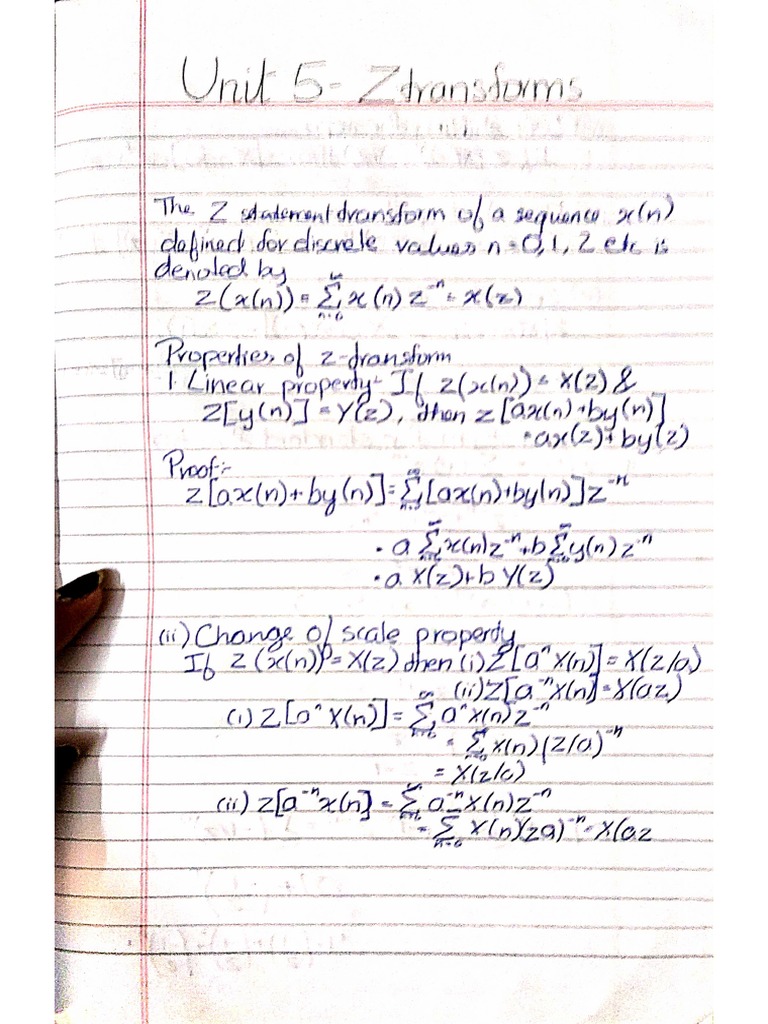 Unit 5- Z transforms
The Z statement transform of a sequence x(n)
defined for discrete values n=0,1,2 etc is
denoted by
Z(x(n)) = ∞Σn=0 x(n) z⁻ⁿ = x(z)
Properties of z-transform
1. Linear property- If z(x(n)) = X(z) &
Z[y(n)] = Y(z), then z[ax(n)+by(n)]
= ax(z)+by(z)
Proof:-
z[ax(n)+by(n)] = ∞Σn=0 [ax(n)+by(n)]z⁻ⁿ
= a ∞Σn=0 x(n)z⁻ⁿ+b ∞Σn=0 y(n)z⁻ⁿ
= a X(z)+b Y(z)
(ii) Change of scale property
If Z(x(n)) = X(z) then (i) Z[aⁿ X(n)] = X(z/a)
(ii) Z[a⁻ⁿX(n] = X(az)
(i) Z[aⁿ X(n)] = ∞Σn=0 aⁿ x(n) z⁻ⁿ
= ∞Σn=0 x(n) (z/a)⁻ⁿ
= X(z/a)
(ii) z[a⁻ⁿ x(n] = ∞Σn=0 a⁻ⁿ X(n) z⁻ⁿ
= ∞Σn=0 X(n)(za)⁻ⁿ = X(az